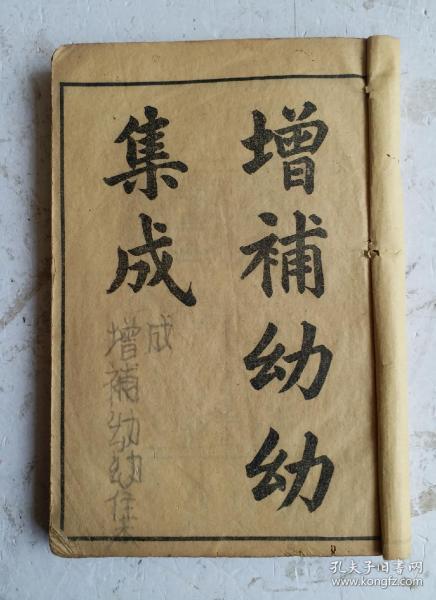 增補幼幼
集成
成
增補幼幼
孔夫子旧书网
www.kongfz.com